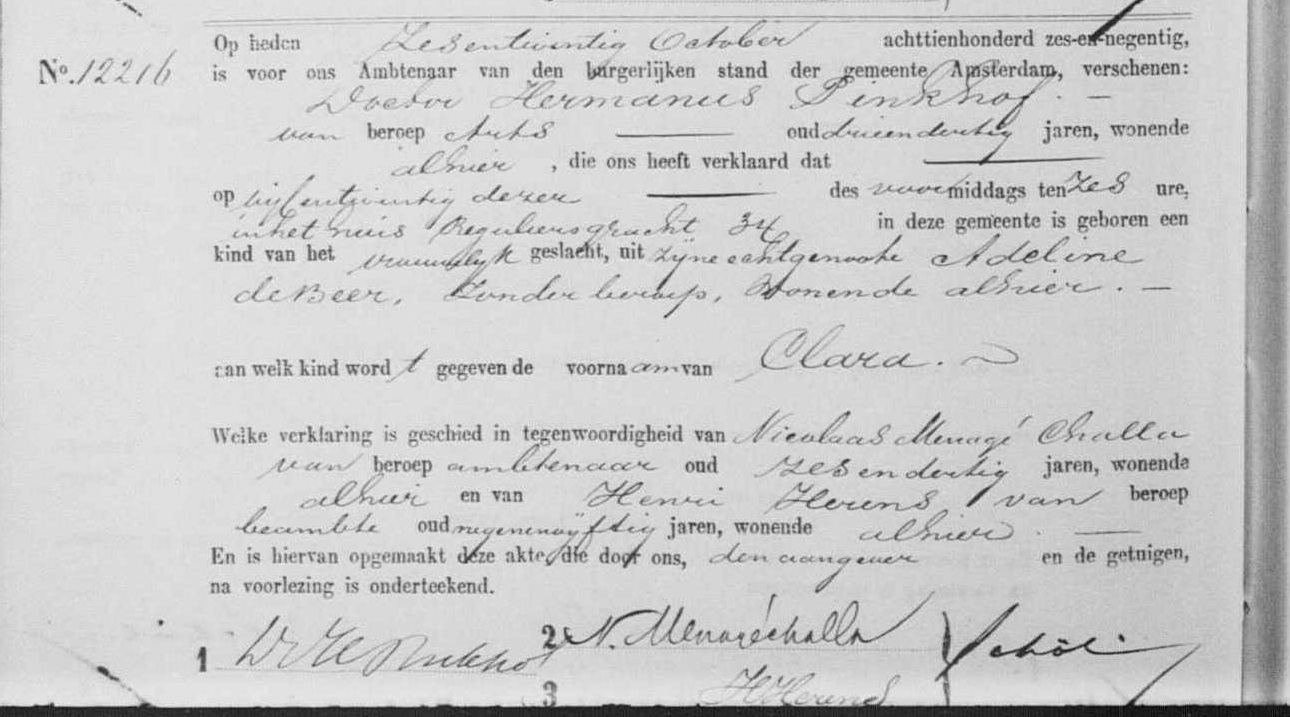 Op heden Zesentwintig October achttienhonderd zes-en-negentig,
No. 12216 is voor ons Ambtenaar van den burgerlijken stand der gemeente Amsterdam, verschenen:
Doctor Hermanus Pinkhof. —
van beroep Arts — oud drieendertig jaren, wonende
alhier, die ons heeft verklaard dat —
op vijfentwintig dezer — des voormiddags ten zes ure,
in het huis Reguliersgracht 34 in deze gemeente is geboren een
kind van het vrouwelijk geslacht, uit zijne echtgenoote Adeline
de Beer, zonder beroep, wonende alhier. —
aan welk kind wordt gegeven de voornaam van Clara.
Welke verklaring is geschied in tegenwoordigheid van Nicolaas Menagé Challa
van beroep ambtenaar oud zesendertig jaren, wonende
alhier en van Henri Herens van beroep
beambte oud negenenvijftig jaren, wonende alhier. —
En is hiervan opgemaakt deze akte, die door ons, den aangever en de getuigen,
na voorlezing is onderteekend.
1 Dr H Pinkhof 2 N. Menagé Challa
3 H Herens